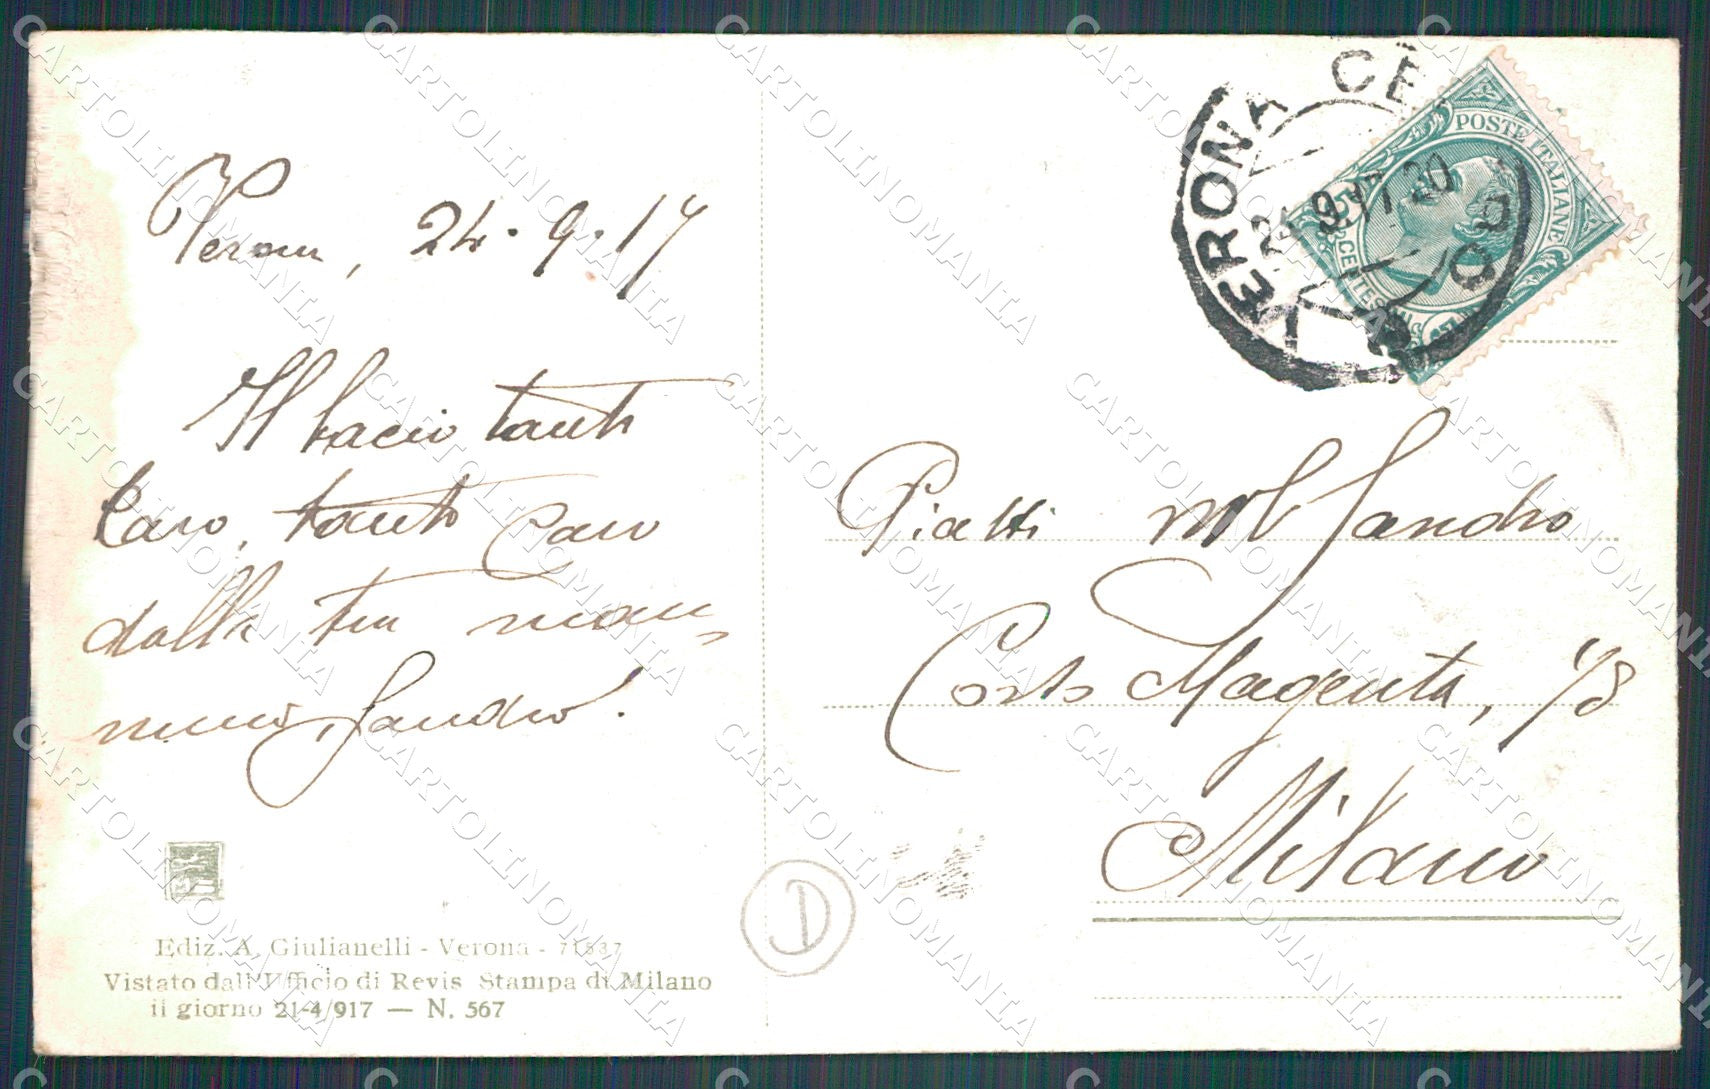 Verona, 24.9.17
Il bacio tanto
Caro, tanto caro
dalla tua mam-
mina, Sandro.
Ediz. A. Giulianelli - Verona - 71537
Vistato dall'Ufficio di Revis Stampa di Milano
il giorno 21-4/917 — N. 567
VERONA CE
24.9.17.20
POSTE ITALIANE
CENTESIMI 5
Piatti nob Sandro
Corso Magenta,
Milano
D
CARTOLINOMANIA